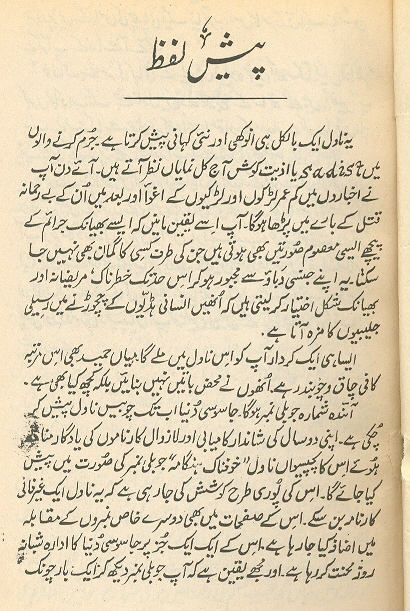 پیش لفظ
یہ ناول ایک بالکل ہی انوکھی اور نئی کہانی پیش کرتا ہے۔ جرم کرنے والوں
میں sadist یا اذیت کوش آج کل نمایاں نظر آتے ہیں۔ آئے دن آپ
نے اخباروں میں کم عمر لڑکوں اور لڑکیوں کے اغوا اور بعد میں اُن کے بے رحمانہ
قتل کے بارے میں پڑھا ہوگا۔ آپ اسے یقین مانیں کہ ایسے بھیانک جرائم کے
پیچھے ایسی معصوم صورتیں بھی ہوتی ہیں جن کی طرف کسی کا گمان بھی نہیں جا
سکتا۔ یہ اپنے جنسی دباؤ سے مجبور ہو کر اس حد تک خطرناک، مریضانہ اور
بھیانک شکل اختیار کر لیتی ہیں کہ اُنھیں انسانی ہڈیوں کے نچوڑنے میں رسیلی
جلیبیوں کا مزہ آتا ہے۔
ایسا ہی ایک کردار آپ کو اس ناول میں ملے گا۔ میاں حمید بھی اس مرتبہ
کافی چاق و چوبند رہے۔ اُنھوں نے محض باتیں نہیں بنائیں بلکہ کچھ کیا بھی ہے۔
آئندہ شمارہ جوبلی نمبر ہوگا۔ جاسوسی دُنیا اب تک چوبیس ناول پیش کر
چکی ہے۔ اپنی دو سال کی شاندار کامیابی اور لازوال کارناموں کی یادگار مناتے
ہوئے اس کا پچیسواں ناول "خوفناک ہنگامہ" جوبلی نمبر کی صورت میں پیش
کیا جائے گا۔ اس کی پُوری طرح کوشش کی جا رہی ہے کہ یہ ناول ایک غیر فانی
کارنامہ بن سکے۔ اس کے صفحات میں بھی دوسرے خاص نمبروں کے مقابلہ
میں اضافہ کیا جا رہا ہے۔ اس کے ایک ایک جُز پر جاسوسی دُنیا کا ادارہ شبانہ
روز محنت کر رہا ہے۔ اور مجھے یقین ہے کہ آپ جوبلی نمبر دیکھ کر ایک بار چونک